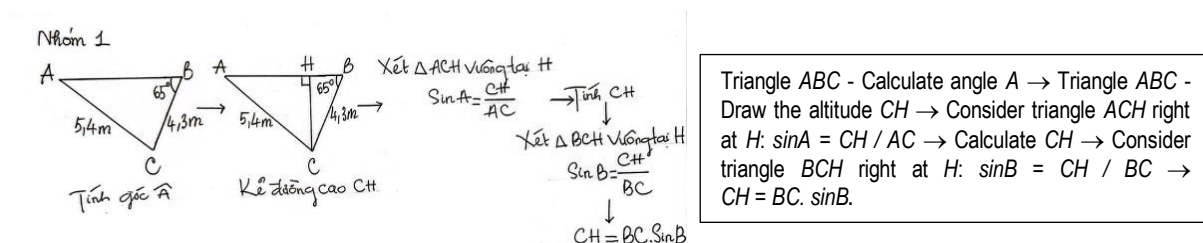 Nhóm 1
A
B
65°
5,4m
4,3m
C
Tính góc Â
A
H
B
65°
5,4m
4,3m
C
Kẻ đường cao CH
Xét △ACH vuông tại H
SinA = CH / AC
→ Tính CH
Xét △BCH vuông tại H
Sin B = CH / BC
↓
CH = BC.SinB
Triangle ABC - Calculate angle A → Triangle ABC -
Draw the altitude CH → Consider triangle ACH right
at H: sinA = CH / AC → Calculate CH → Consider
triangle BCH right at H: sinB = CH / BC →
CH = BC. sinB.